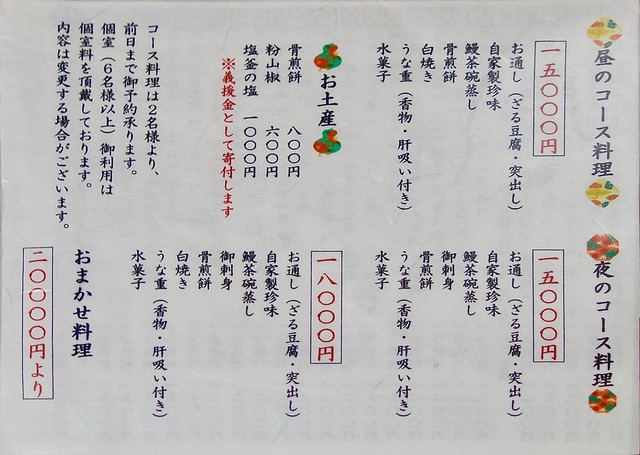 昼のコース料理
一五〇〇〇円
お通し（ざる豆腐・突出し）
自家製珍味
鰻茶碗蒸し
骨煎餅
白焼き
うな重（香物・肝吸い付き）
水菓子
お土産
骨煎餅　八〇〇円
粉山椒　六〇〇円
塩釜の塩　一〇〇〇円
※義援金として寄付します
コース料理は２名様より、
前日まで御予約承ります。
個室（６名様以上）御利用は
個室料を頂戴しております。
内容は変更する場合がございます。
夜のコース料理
一五〇〇〇円
お通し（ざる豆腐・突出し）
自家製珍味
鰻茶碗蒸し
御刺身
骨煎餅
うな重（香物・肝吸い付き）
水菓子
一八〇〇〇円
お通し（ざる豆腐・突出し）
自家製珍味
鰻茶碗蒸し
御刺身
骨煎餅
白焼き
うな重（香物・肝吸い付き）
水菓子
おまかせ料理
二〇〇〇〇円より